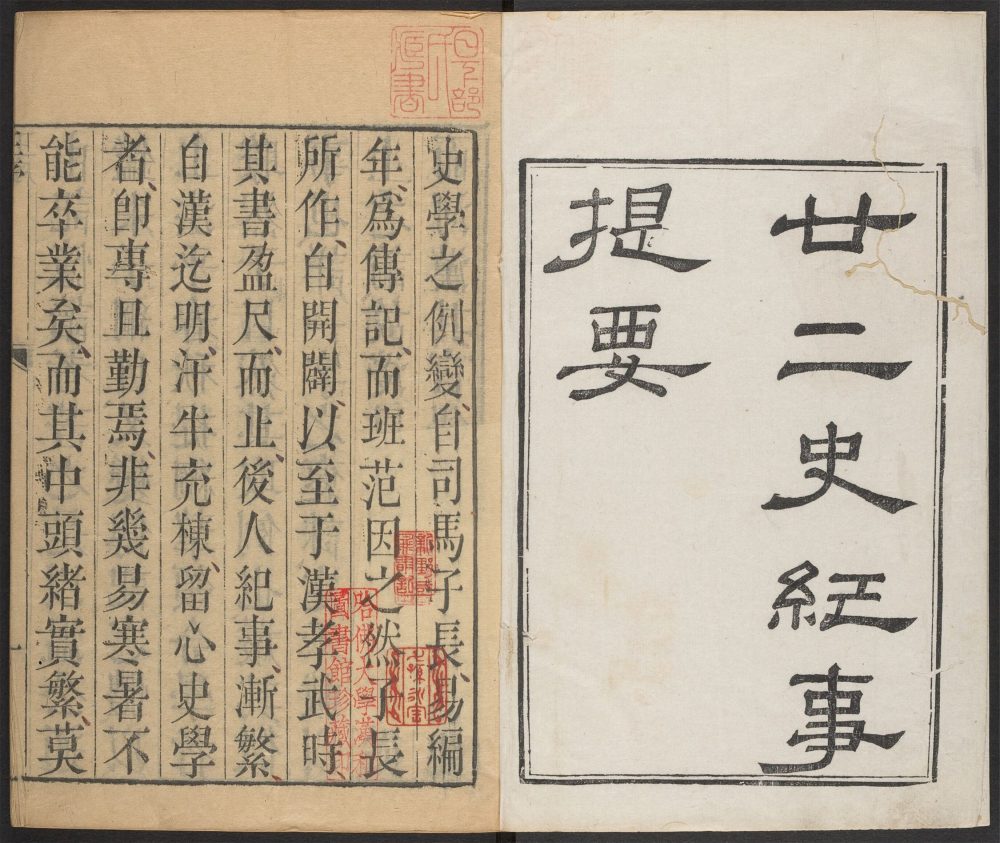 廿二史紀事
提要
史學之例變自司馬子長易編
年、爲傳記、而班范因之、然子長
所作、自開闢、以至于漢孝武時
其書盈尺、而止、後人紀事、漸繁、
自漢迄明、汗牛充棟、留心史學
者、卽專且勤焉、非幾易寒暑不
能卒業矣、而其中頭緒實繁、莫
哈佛大學漢和
圖書館珍藏印